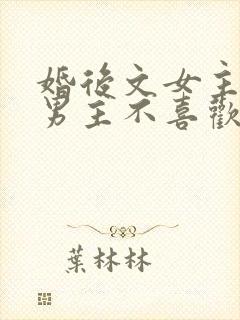 婚後文女主
男主不喜歡
葉林林